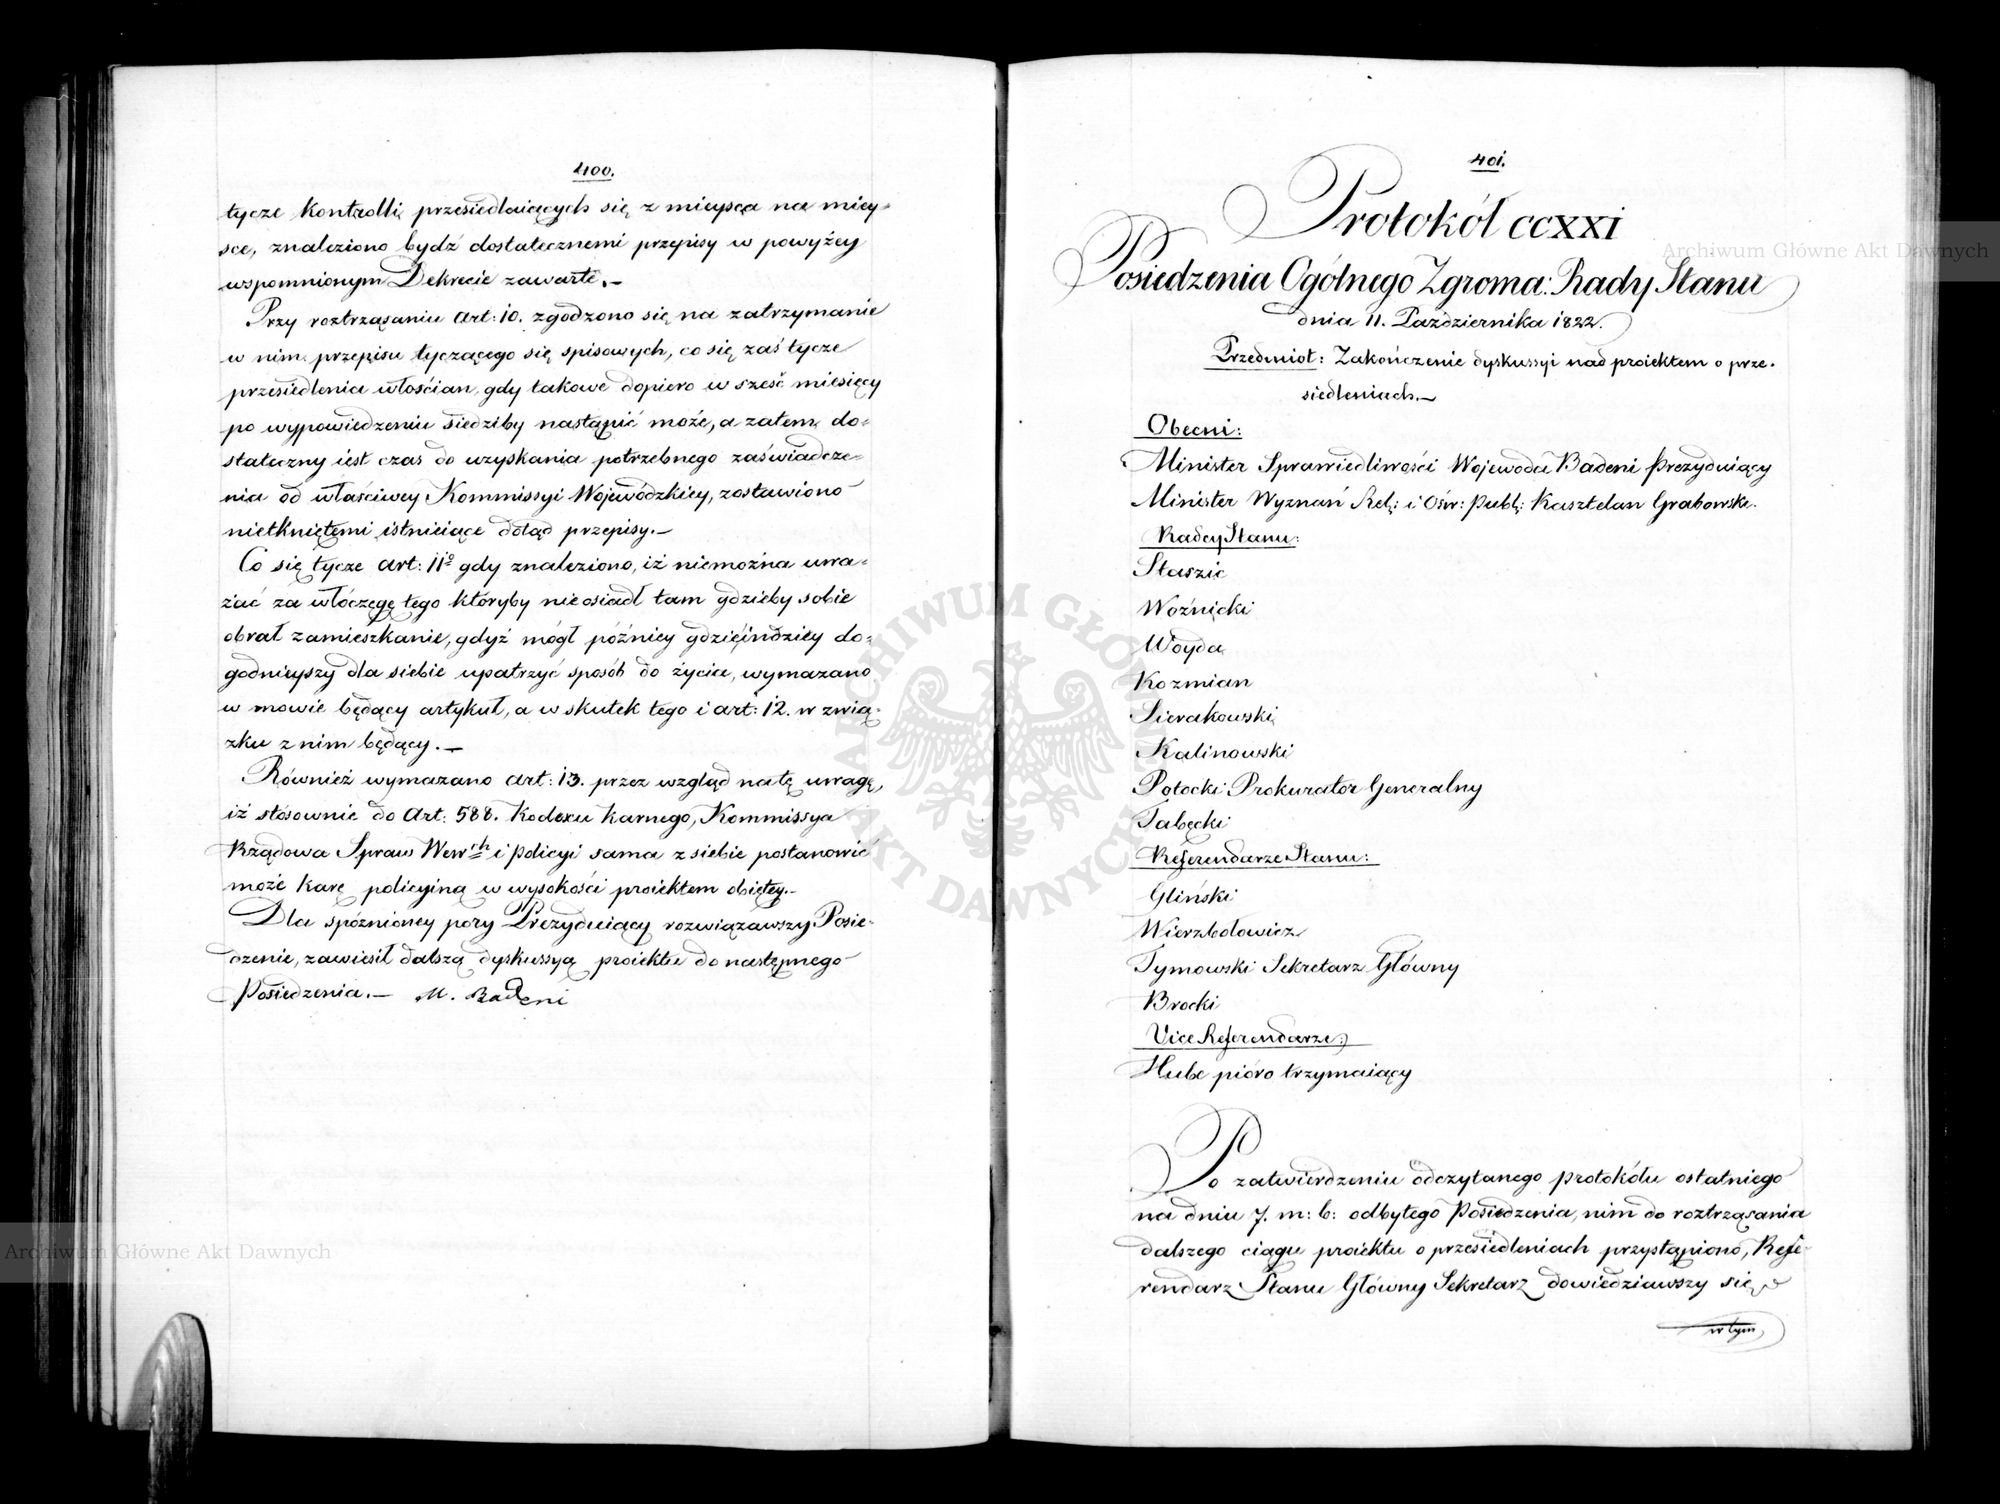 400.
tycze Kontrolli przesiedlaiących się z mieysca na miey-
sce, znaleziono bydź dostatecznemi przepisy w powyżey
wspomnionym Dekrecie zawarte.—
Przy roztrząsaniu Art: 10. zgodzono się na zatrzymanie
w nim przepisu tyczącego się spisowych, co się zaś tycze
przesiedlenia włościan, gdy takowe dopiero w sześć miesięcy
po wypowiedzeniu siedziby nastąpić może, a zatem do-
stateczny iest czas do uzyskania potrzebnego zaświadcze-
nia od właściwey Kommissyi Wojewódzkiey, zostawiono
nietkniętemi istnieiące dotąd przepisy.—
Co się tycze Art: 11º gdy znaleziono, iż niemożna uwa-
żać za włóczęgę tego któryby nie osiadł tam gdzieby sobie
obrał zamieszkanie, gdyż mógł późniey gdzieindziey do-
godnieyszy dla siebie upatrzyć sposób do życia, wymazano
w mowie będący artykuł, a w skutek tego i art: 12. w zwią-
zku z nim będący.—
Również wymazano Art: 13. przez wzgląd na tę uwagę,
iż stósownie do Art: 588. Kodexu Karnego, Kommissya
Rządowa Spraw Wewch i Policyi sama z siebie postanowić
może karę policyiną w wysokości proiektem obiętey.—
Dla spóźnioney pory Prezyduiący rozwiązawszy Posie-
dzenie, zawiesił dalszą dyskussyą proiektu do następnego
Posiedzenia.— M. Badeni
401.
Protokół CCXXI
Posiedzenia Ogólnego Zgroma: Rady Stanu
dnia 11. Października 1822.
Przedmiot: Zakończenie dyskussyi nad proiektem o prze-
siedleniach.—
Obecni:
Minister Sprawiedliwości Wojewoda Badeni Prezyduiący
Minister Wyznań Rel: i Ośw: Publ: Kasztelan Grabowski.
Radcy Stanu:
Staszic
Woźnicki
Woyda
Kozmian
Sierakowski
Kalinowski
Potocki Prokurator Generalny
Tabęcki
Referendarze Stanu:
Gliński
Wierzbołowicz
Tymowski Sekretarz Główny
Brocki
Vice Referendarze:
Hube pióro trzymaiący
Po zatwierdzeniu odczytanego protokółu ostatniego
na dniu 7. m: b: odbytego Posiedzenia, nim do roztrząsania
dalszego ciągu proiektu o przesiedleniach przystąpiono, Refe-
rendarz Stanu Główny Sekretarz dowiedziawszy się
w tym
Archiwum Główne Akt Dawnych
Archiwum Główne Akt Dawnych
ARCHIWUM GŁÓWNE AKT DAWNYCH